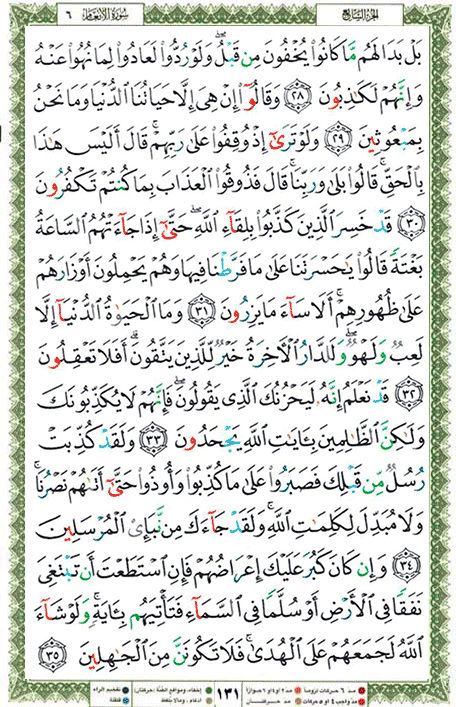 سورة الأنعام ٦
الجزء السابع
بَلْ بَدَا لَهُم مَّا كَانُوا۟ يُخْفُونَ مِن قَبْلُ ۖ وَلَوْ رُدُّوا۟ لَعَادُوا۟ لِمَا نُهُوا۟ عَنْهُ
وَإِنَّهُمْ لَكَـٰذِبُونَ ٢٨ وَقَالُوٓا۟ إِنْ هِىَ إِلَّا حَيَاتُنَا ٱلدُّنْيَا وَمَا نَحْنُ
بِمَبْعُوثِينَ ٢٩ وَلَوْ تَرَىٰٓ إِذْ وُقِفُوا۟ عَلَىٰ رَبِّهِمْ ۚ قَالَ أَلَيْسَ هَـٰذَا
بِٱلْحَقِّ ۚ قَالُوا۟ بَلَىٰ وَرَبِّنَا ۚ قَالَ فَذُوقُوا۟ ٱلْعَذَابَ بِمَا كُنتُمْ تَكْفُرُونَ
٣٠ قَدْ خَسِرَ ٱلَّذِينَ كَذَّبُوا۟ بِلِقَآءِ ٱللَّهِ ۖ حَتَّىٰٓ إِذَا جَآءَتْهُمُ ٱلسَّاعَةُ
بَغْتَةً قَالُوا۟ يَـٰحَسْرَتَنَا عَلَىٰ مَا فَرَّطْنَا فِيهَا وَهُمْ يَحْمِلُونَ أَوْزَارَهُمْ
عَلَىٰ ظُهُورِهِمْ ۚ أَلَا سَآءَ مَا يَزِرُونَ ٣١ وَمَا ٱلْحَيَوٰةُ ٱلدُّنْيَآ إِلَّا
لَعِبٌ وَلَهْوٌ ۖ وَلَلدَّارُ ٱلْـَٔاخِرَةُ خَيْرٌ لِّلَّذِينَ يَتَّقُونَ ۗ أَفَلَا تَعْقِلُونَ
٣٢ قَدْ نَعْلَمُ إِنَّهُۥ لَيَحْزُنُكَ ٱلَّذِى يَقُولُونَ ۖ فَإِنَّهُمْ لَا يُكَذِّبُونَكَ
وَلَـٰكِنَّ ٱلظَّـٰلِمِينَ بِـَٔايَـٰتِ ٱللَّهِ يَجْحَدُونَ ٣٣ وَلَقَدْ كُذِّبَتْ
رُسُلٌ مِّن قَبْلِكَ فَصَبَرُوا۟ عَلَىٰ مَا كُذِّبُوا۟ وَأُوذُوا۟ حَتَّىٰٓ أَتَىٰهُمْ نَصْرُنَا ۚ
وَلَا مُبَدِّلَ لِكَلِمَـٰتِ ٱللَّهِ ۚ وَلَقَدْ جَآءَكَ مِن نَّبَإِى۟ ٱلْمُرْسَلِينَ
٣٤ وَإِن كَانَ كَبُرَ عَلَيْكَ إِعْرَاضُهُمْ فَإِنِ ٱسْتَطَعْتَ أَن تَبْتَغِىَ
نَفَقًا فِى ٱلْأَرْضِ أَوْ سُلَّمًا فِى ٱلسَّمَآءِ فَتَأْتِيَهُم بِـَٔايَةٍ ۚ وَلَوْ شَآءَ
ٱللَّهُ لَجَمَعَهُمْ عَلَى ٱلْهُدَىٰ ۚ فَلَا تَكُونَنَّ مِنَ ٱلْجَـٰهِلِينَ ٣٥
مد ٦ حركات لزوماً مد ٢ أو ٤ أو ٦ جوازاً
مد واجب ٤ أو ٥ حركات مد حركتان
١٣١
إخفاء، ومواقع الغنة (حركتان) تفخيم الراء
إدغام، وما لا يلفظ قلقلة